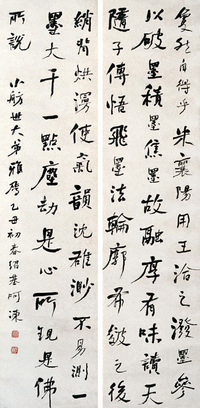 自得乎米襄陽用王洽之潑墨參
以破墨積墨焦墨故融厚有味讀天
隨子傳悟飛墨法輪廓布皴之後
綃背烘漫使氣韻沈雄渺不易測一
墨大千一點塵劫是心所現是佛
所說 小舫世大弟雅屬乙丑初春紹基阿凍